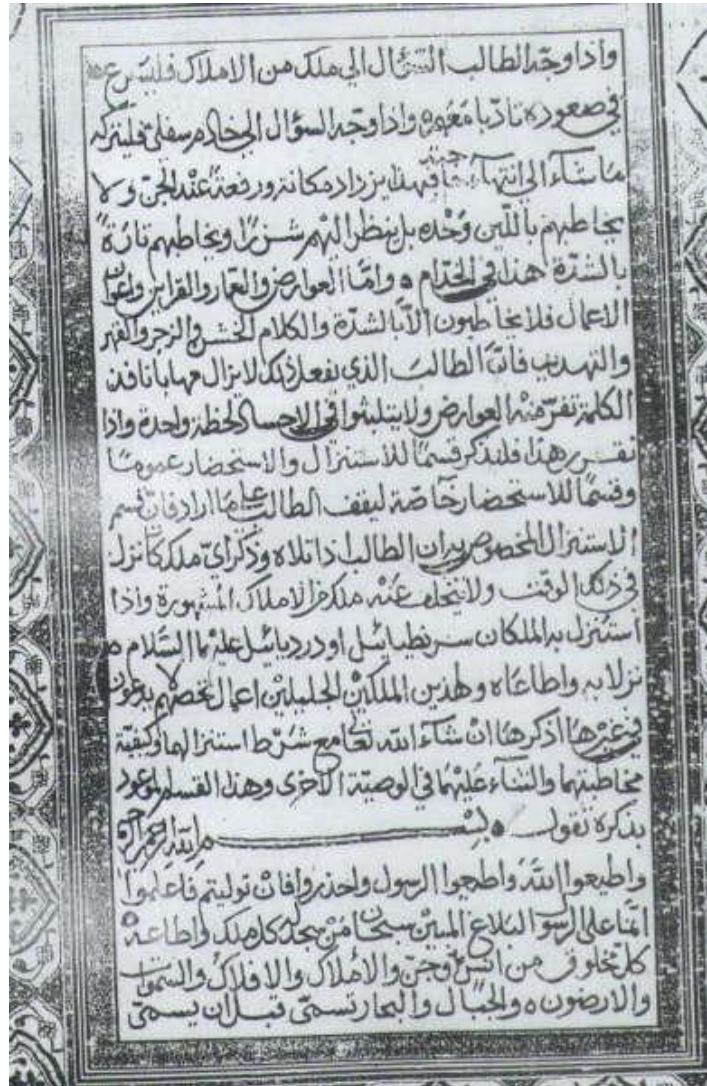 واذا وجه الطالب السؤال الي ملك من الاملاك فليسرع
في صعوده تادبا معهم واذا وجه السؤال الي خادم سفلي فليتركه
ما شاء الي انتهاء حاجته فهذا يزداد مكانة ورفعة عند الجن ولا
يخاطبهم باللين وحده بل ينظر اليهم شزرا ويخاطبهم تارة
بالشدة هذا في الخدام ه واما العوارض والعمار والقراين واعوان
الاعمال فلا يخاطبون الا بالشدة والكلام الخشن والزجر والقهر
والتهديد فان الطالب الذي يفعل ذلك لا يزال مهابا نافذ
الكلمة تفر منه العوارض ولا يتلبثوا في الاجساد لحظة واحدة واذا
تقرر هذا فلنذكر قسما للاستنزال والاستحضار عموما
وقسما للاستحضار خاصة ليقف الطالب علي ما اراد فان قسم
الاستنزال المخصوص به ان الطالب اذا تلاه وذكر اي ملك كان نزل
في ذلك الوقت ولا يتخلف عنه ملك من الاملاك المشهورة واذا
استنزل به الملكان سرنطيائيل او دردبائيل عليهما السلام ه
نزلا به واطاعاه ولهذين الملكين الجليلين اعمال تخصهم لا يدعون
في غيرها اذكرها ان شاء الله تعا مع شرط استنزالهما وكيفية
مخاطبتهما والثناء عليهما في الوصية الاخرى وهذا القسم الموعود
بذكره نقول ه بسم الله الرحمن الرحيم
واطيعوا الله واطيعوا الرسول واحذروا فان توليتم فاعلموا
انما على رسولنا البلاغ المبين سبحان من مجده كل ملك واطاعه
كل مخلوق من انس وجن والاملاك والافلاك والسموات
والارضون ه والجبال والبحار تسمى قبل ان يسمى